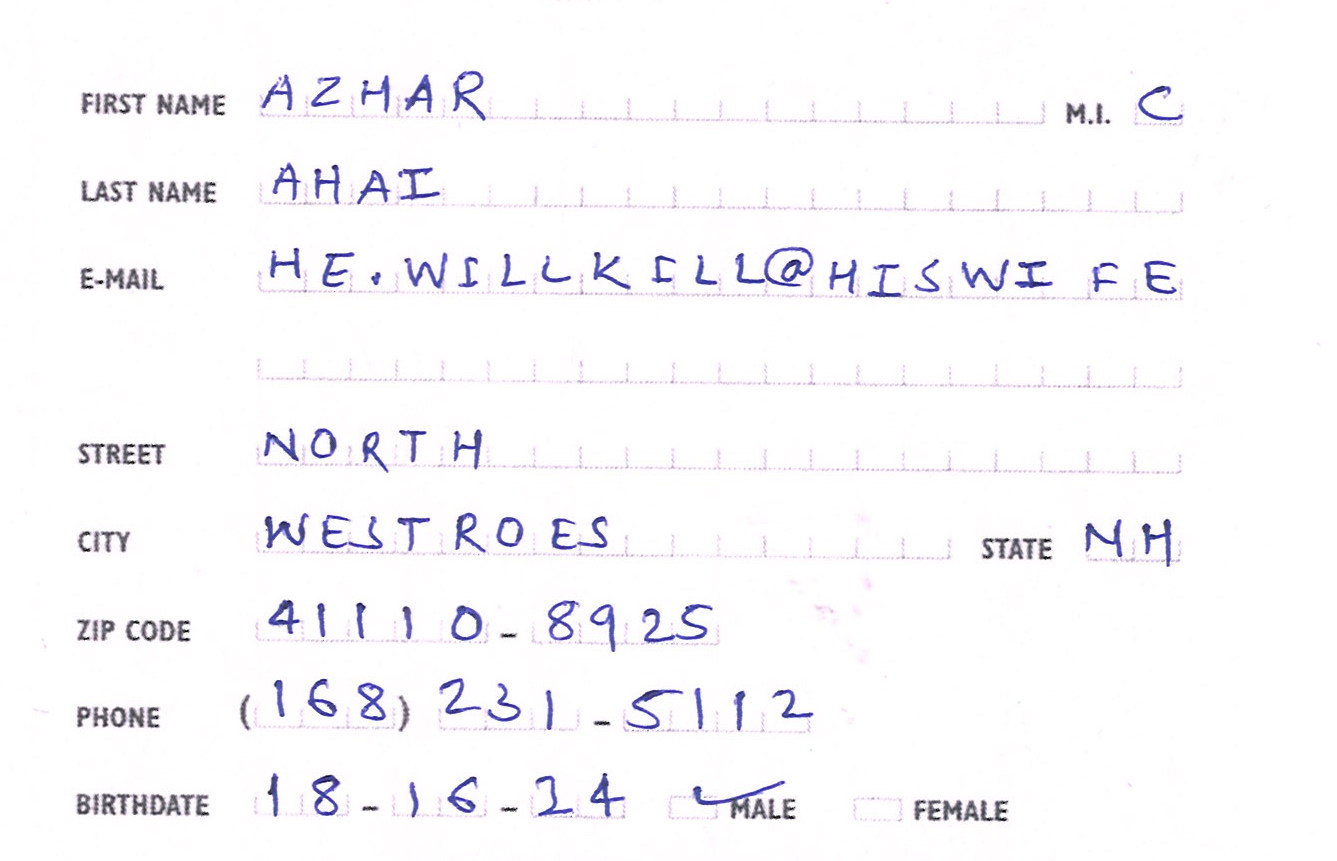 FIRST NAME AZHAR M.I. C
LAST NAME AHAI
E-MAIL HE.WILLKILL@HISWIFE
STREET NORTH
CITY WESTROES STATE NH
ZIP CODE 41110-8925
PHONE (168) 231-5112
BIRTHDATE 18-16-24 MALE FEMALE